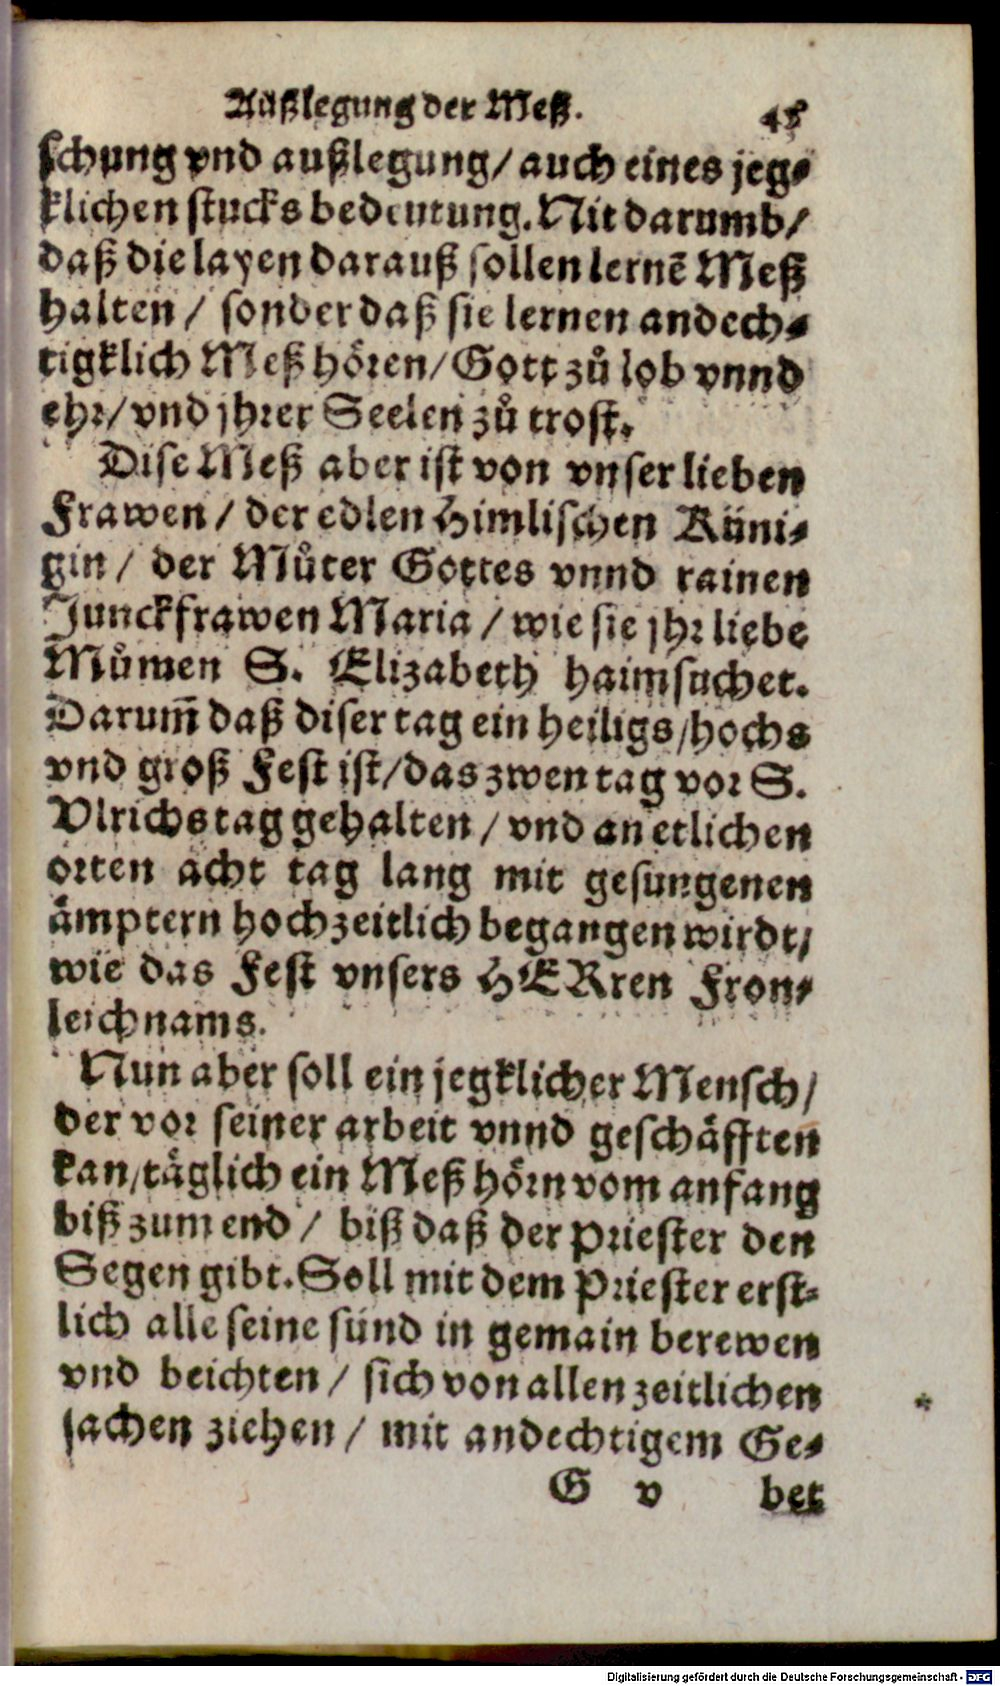 Außlegung der Meß. 45
schung vnd außlegung/ auch eines jeg⸗
klichen stucks bedeutung. Nit darumb/
daß die layen darauß sollen lernē Meß
halten / sonder daß sie lernen andech⸗
tigklich Meß hören/ Gott zů lob vnnd
ehr/ vnd jhrer Seelen zů trost.
Dise Meß aber ist von vnser lieben
Frawen / der edlen Himlischen Küni⸗
gin / der Můter Gottes vnnd rainen
Junckfrawen Maria / wie sie jhr liebe
Můmen S. Elizabeth haimsuchet.
Darum̄ daß diser tag ein heiligs/hochs
vnd groß Fest ist/das zwen tag vor S.
Vlrichs tag gehalten / vnd an etlichen
orten acht tag lang mit gesungenen
ämptern hochzeitlich begangen wirdt/
wie das Fest vnsers HERren Fron⸗
leichnams.
Nun aber soll ein jegklicher Mensch/
der vor seiner arbeit vnnd geschäfften
kan/täglich ein Meß hörn vom anfang
biß zum end / biß daß der Priester den
Segen gibt. Soll mit dem Priester erst⸗
lich alle seine sünd in gemain berewen
vnd beichten / sich von allen zeitlichen
sachen ziehen / mit andechtigem Ge⸗
G v bet
Digitalisierung gefördert durch die Deutsche Forschungsgemeinschaft - DFG